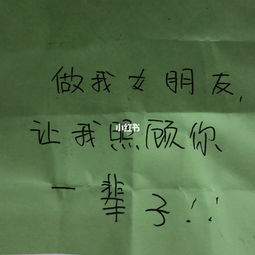 做我女朋友,
让我照顾你
小红书
一辈子!!